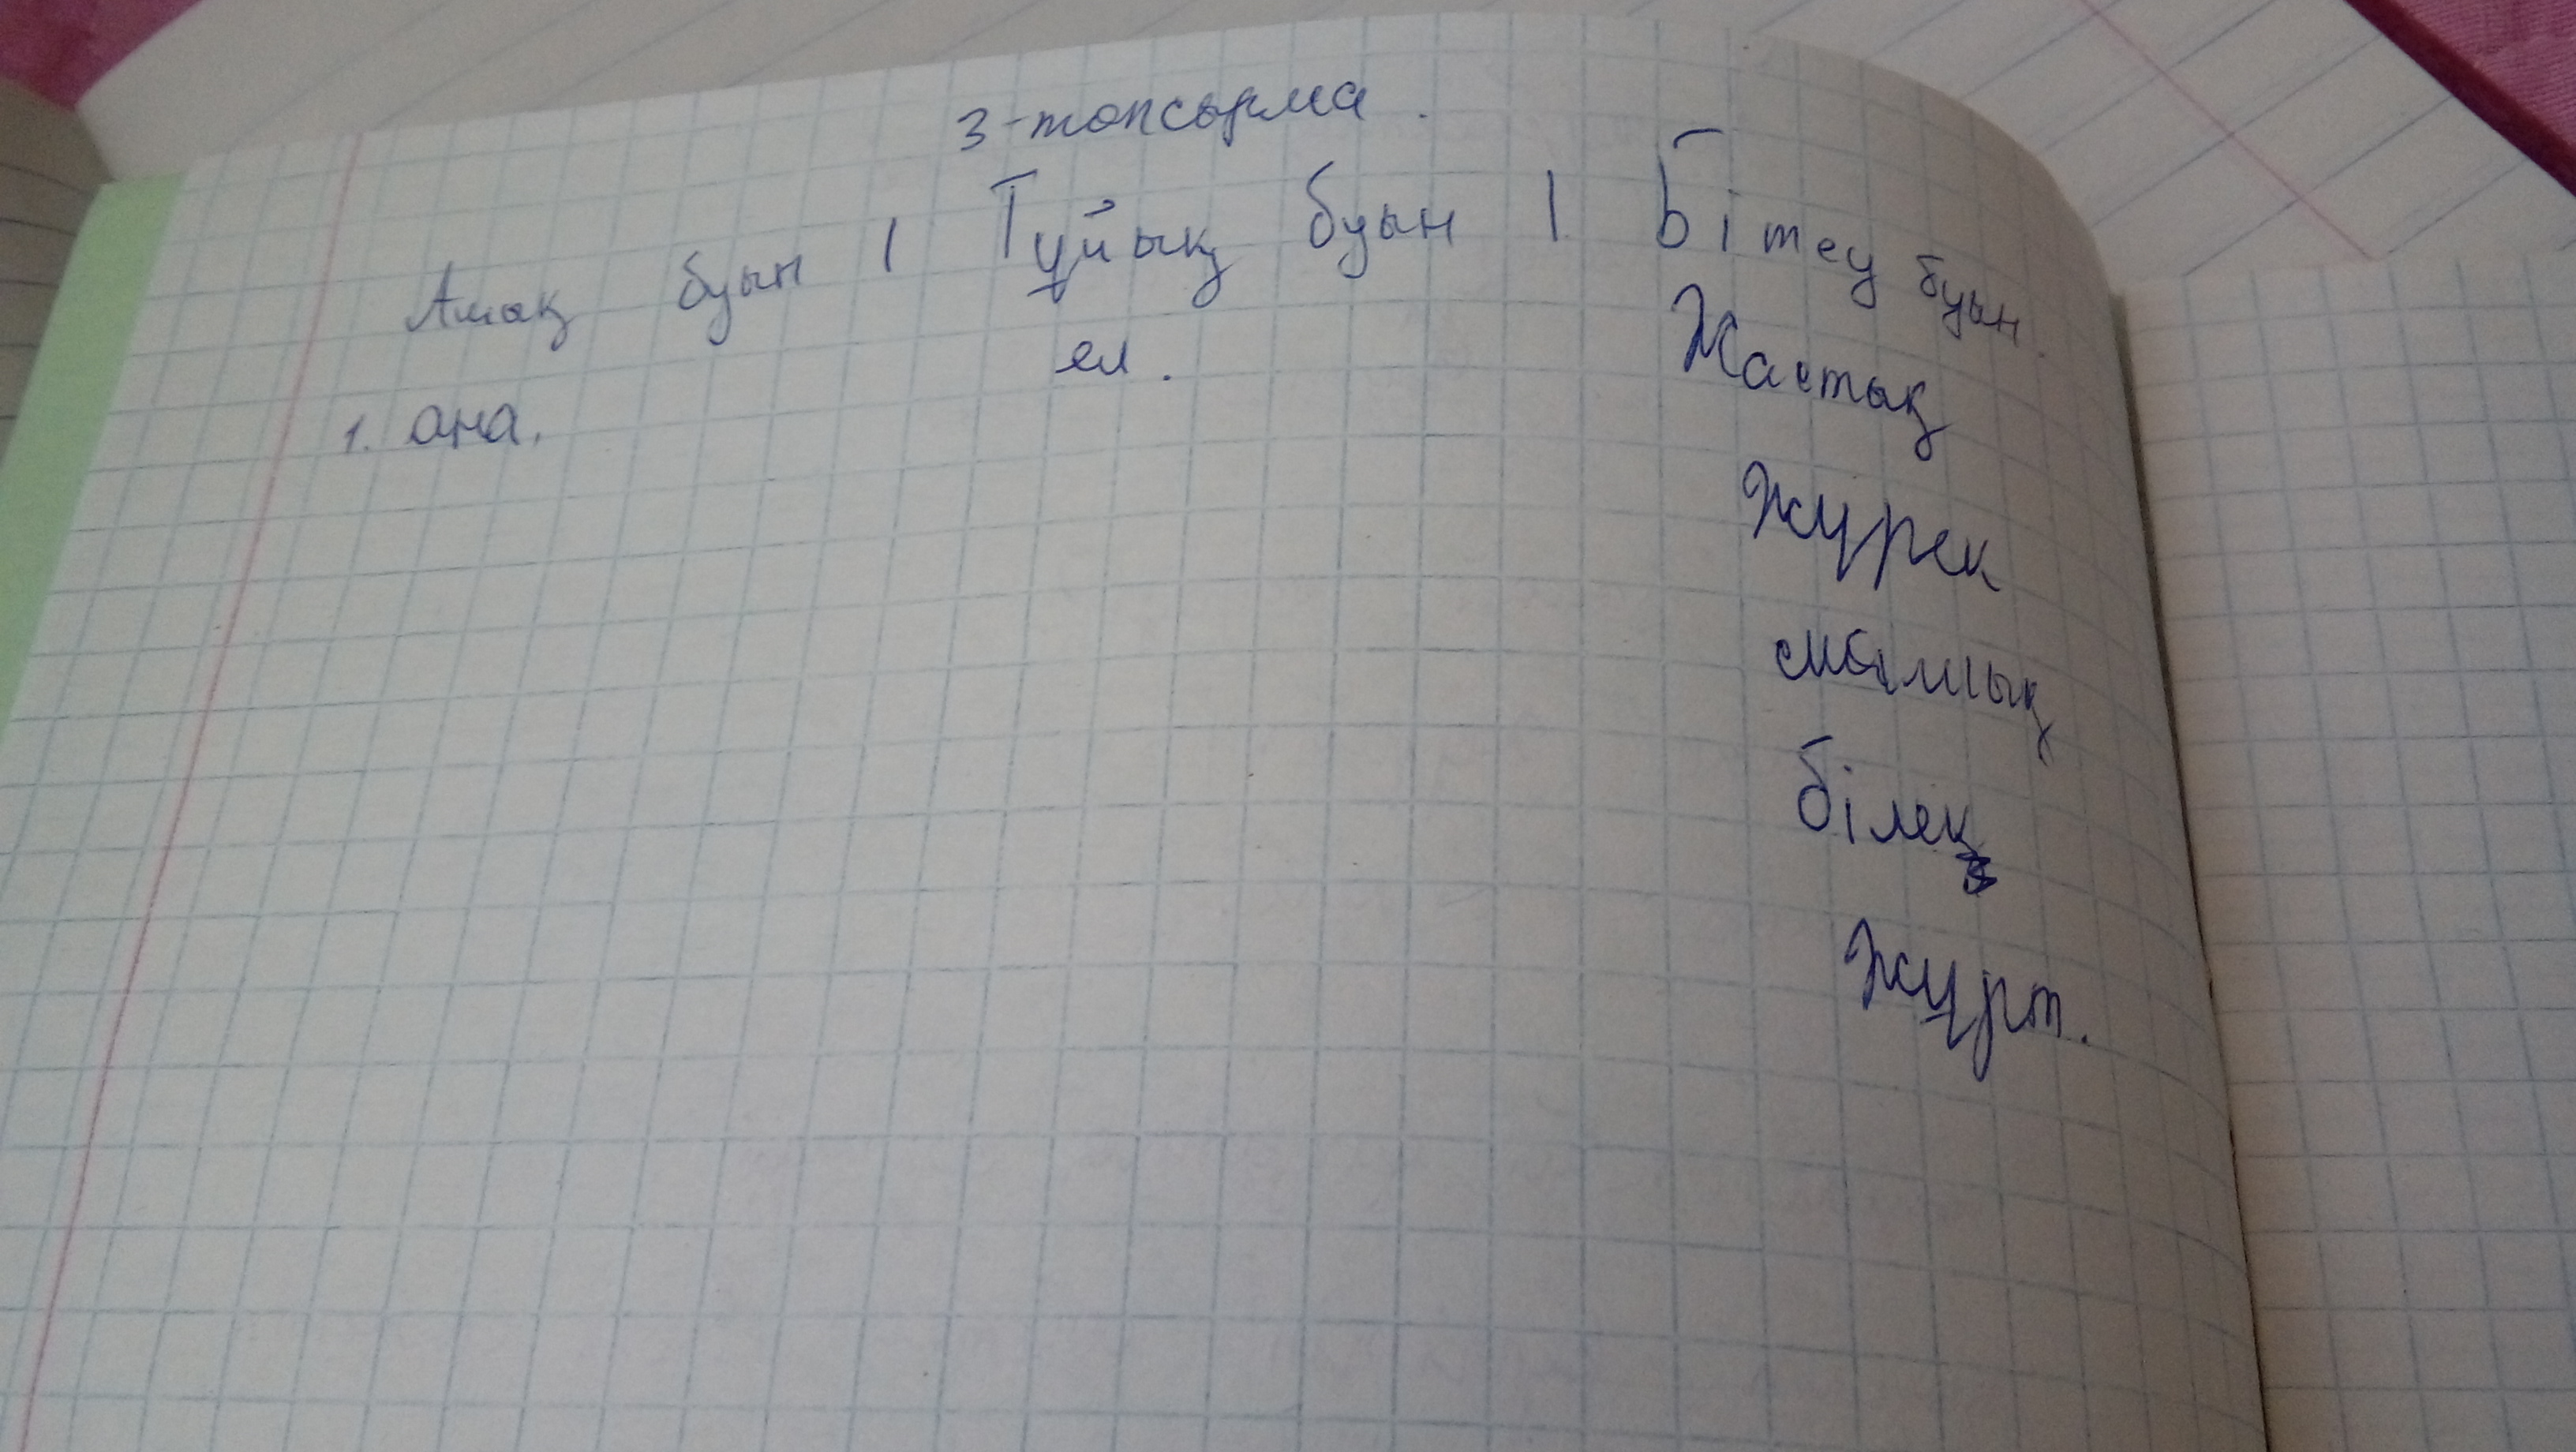 3-тапсырма.
Ашық буын | Тұйық буын | Бітеу буын.
1. ана. ел. Жастық
Жүрек
білек
Жұрт.